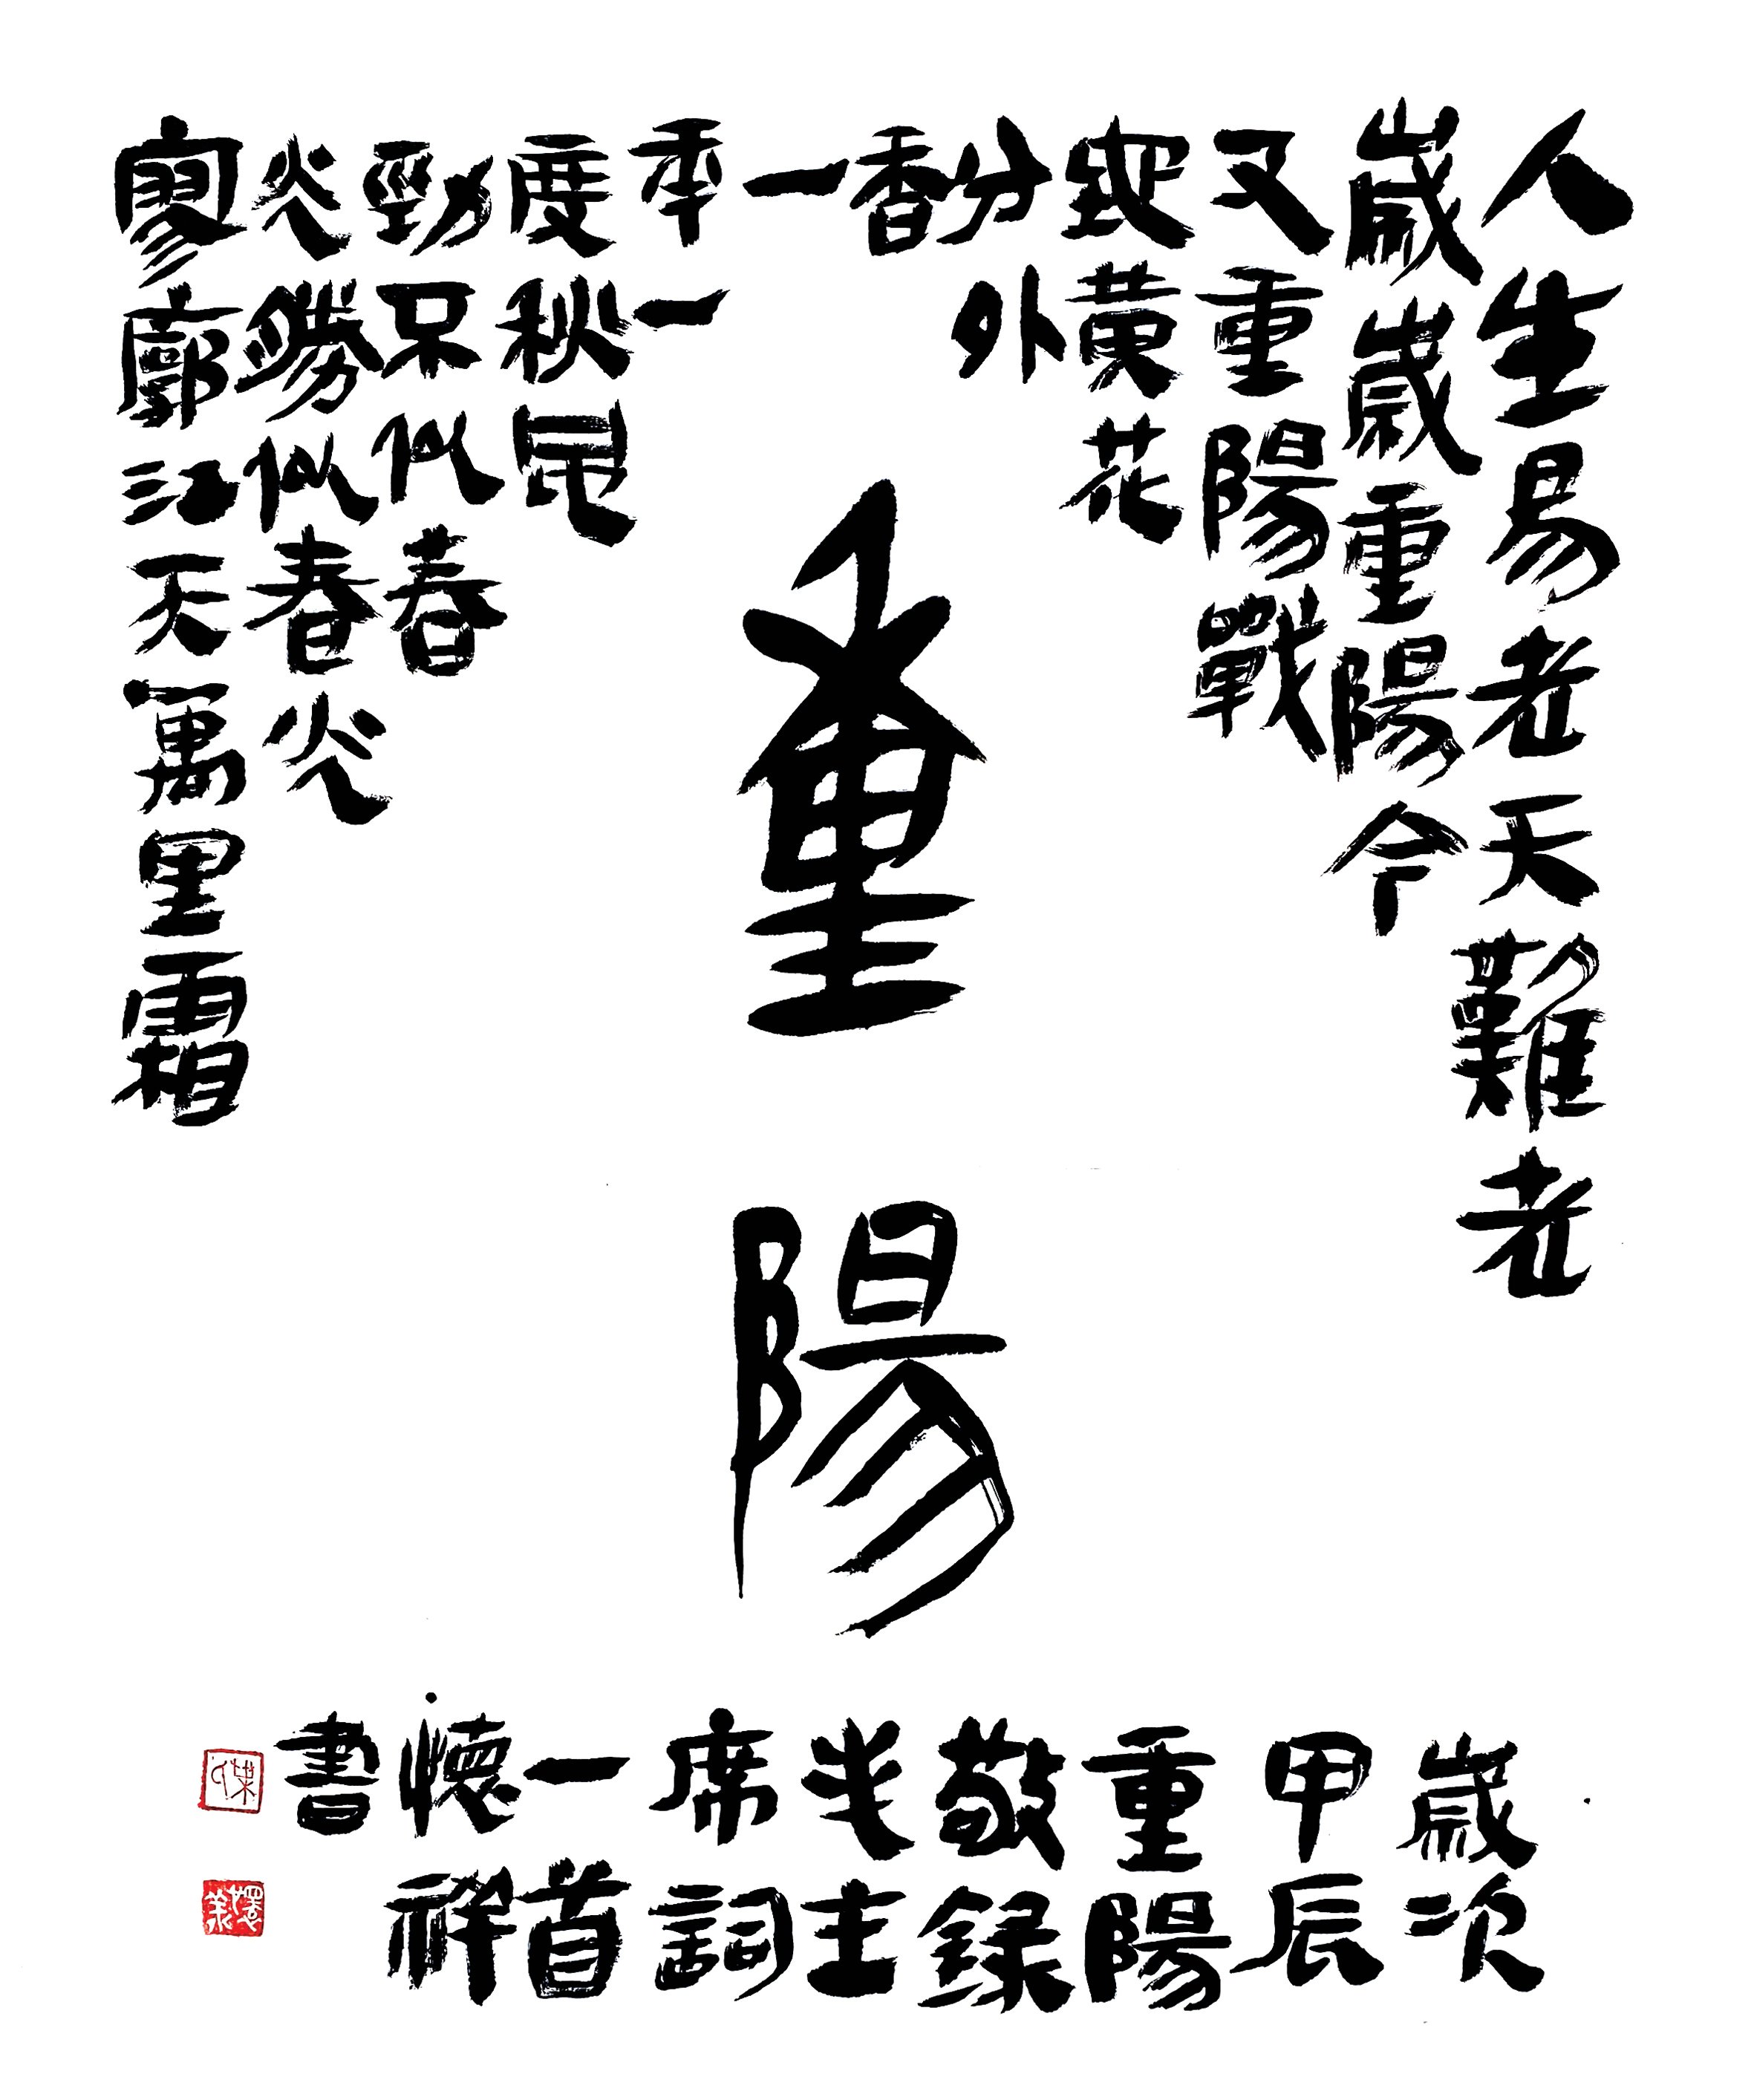 人生易老天難老
歲歲重陽今
又重陽戰
地黃花
分外
香
一
秊一
度秋風
勁不似春
光勝似春光
寥廓江天萬里霜
重陽
歲次
甲辰
重陽
敬錄
毛主
席詞
一首
懷祥
書